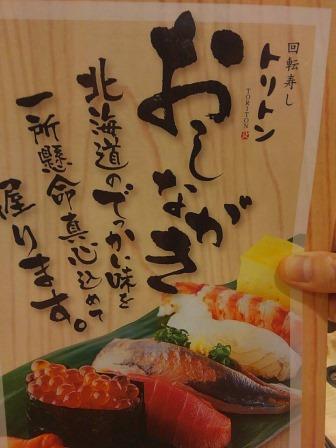 回転寿し
トリトン
TORITON
おしながき
北海道のでっかい味を
一所懸命真心込めて
握ります。